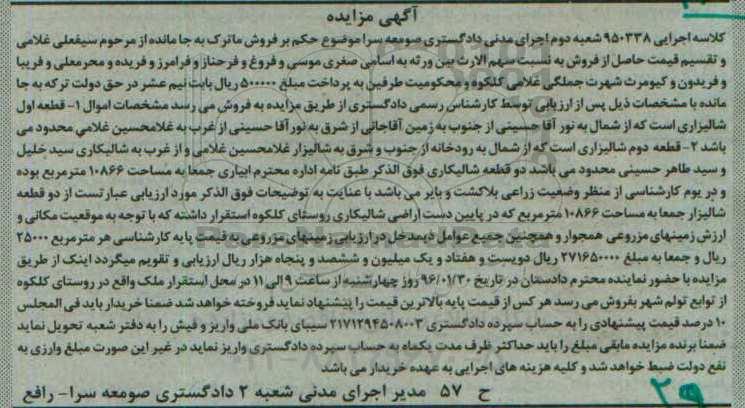 آگهی مزایده
کلاسه اجرایی ۹۵۰۳۳۸ شعبه دوم اجرای مدنی دادگستری صومعه سرا موضوع حکم بر فروش ماترک به جا مانده از مرحوم سیفعلی غلامی
و تقسیم قیمت حاصل از فروش به نسبت سهم الارث بین ورثه به اسامی صغری موسی و فروغ و فرحناز و فرامرز و فریده و محرمعلی و فریبا
و فریدون و کیومرث شهرت جملگی غلامی کلکوه و محکومیت طرفین به پرداخت مبلغ ۵۰۰۰۰۰ ریال بابت نیم عشر در حق دولت ترکه به جا
مانده با مشخصات ذیل پس از ارزیابی توسط کارشناس رسمی دادگستری از طریق مزایده به فروش می رسد مشخصات اموال ۱- قطعه اول
شالیزاری است که از شمال به نور آقا حسینی از جنوب به زمین آقاجانی از شرق به نور آقا حسینی از غرب به غلامحسین غلامی محدود می
باشد ۲- قطعه دوم شالیزاری است که از شمال به رودخانه از جنوب و شرق به شالیزار غلامحسین غلامی و از غرب به شالیکاری سید خلیل
و سید طاهر حسینی محدود می باشد دو قطعه شالیکاری فوق الذکر طبق نامه اداره محترم ابیاری جمعا به مساحت ۱۰۸۶۶ مترمربع بوده
و در یوم کارشناسی از منظر وضعیت زراعی بلاکشت و بایر می باشد با عنایت به توضیحات فوق الذکر مورد ارزیابی عبارتست از دو قطعه
شالیزار جمعا به مساحت ۱۰۸۶۶ مترمربع که در پایین دست اراضی شالیکاری روستای کلکوه استقرار داشته که با توجه به موقعیت مکانی و
ارزش زمینهای مزروعی همجوار و همچنین جمیع عوامل ذیمدخل در ارزیابی زمینهای مزروعی به قیمت پایه کارشناسی هر مترمربع ۲۵۰۰۰
ریال و جمعا به مبلغ ۲۷۱۶۵۰۰۰۰ ریال دویست و هفتاد و یک میلیون و ششصد و پنجاه هزار ریال ارزیابی و تقویم میگردد اینک از طریق
مزایده با حضور نماینده محترم دادستان در تاریخ ۹۶/۰۱/۳۰ روز چهارشنبه از ساعت ۹ الی ۱۱ در محل استقرار ملک واقع در روستای کلکوه
از توابع تولم شهر بفروش می رسد هر کس از قیمت پایه بالاترین قیمت را پیشنهاد نماید فروخته خواهد شد ضمنا خریدار باید فی المجلس
۱۰ درصد قیمت پیشنهادی را به حساب سپرده دادگستری ۲۱۷۱۲۹۴۵۰۸۰۰۳ سیبای بانک ملی واریز و فیش را به دفتر شعبه تحویل نماید
ضمنا برنده مزایده مابقی مبلغ را باید حداکثر ظرف مدت یکماه به حساب سپرده دادگستری واریز نماید در غیر این صورت مبلغ واریز‌ی به
نفع دولت ضبط خواهد شد و کلیه هزینه های اجرایی به عهده خریدار می باشد
ح ۵۷ مدیر اجرای مدنی شعبه ۲ دادگستری صومعه سرا- رافع